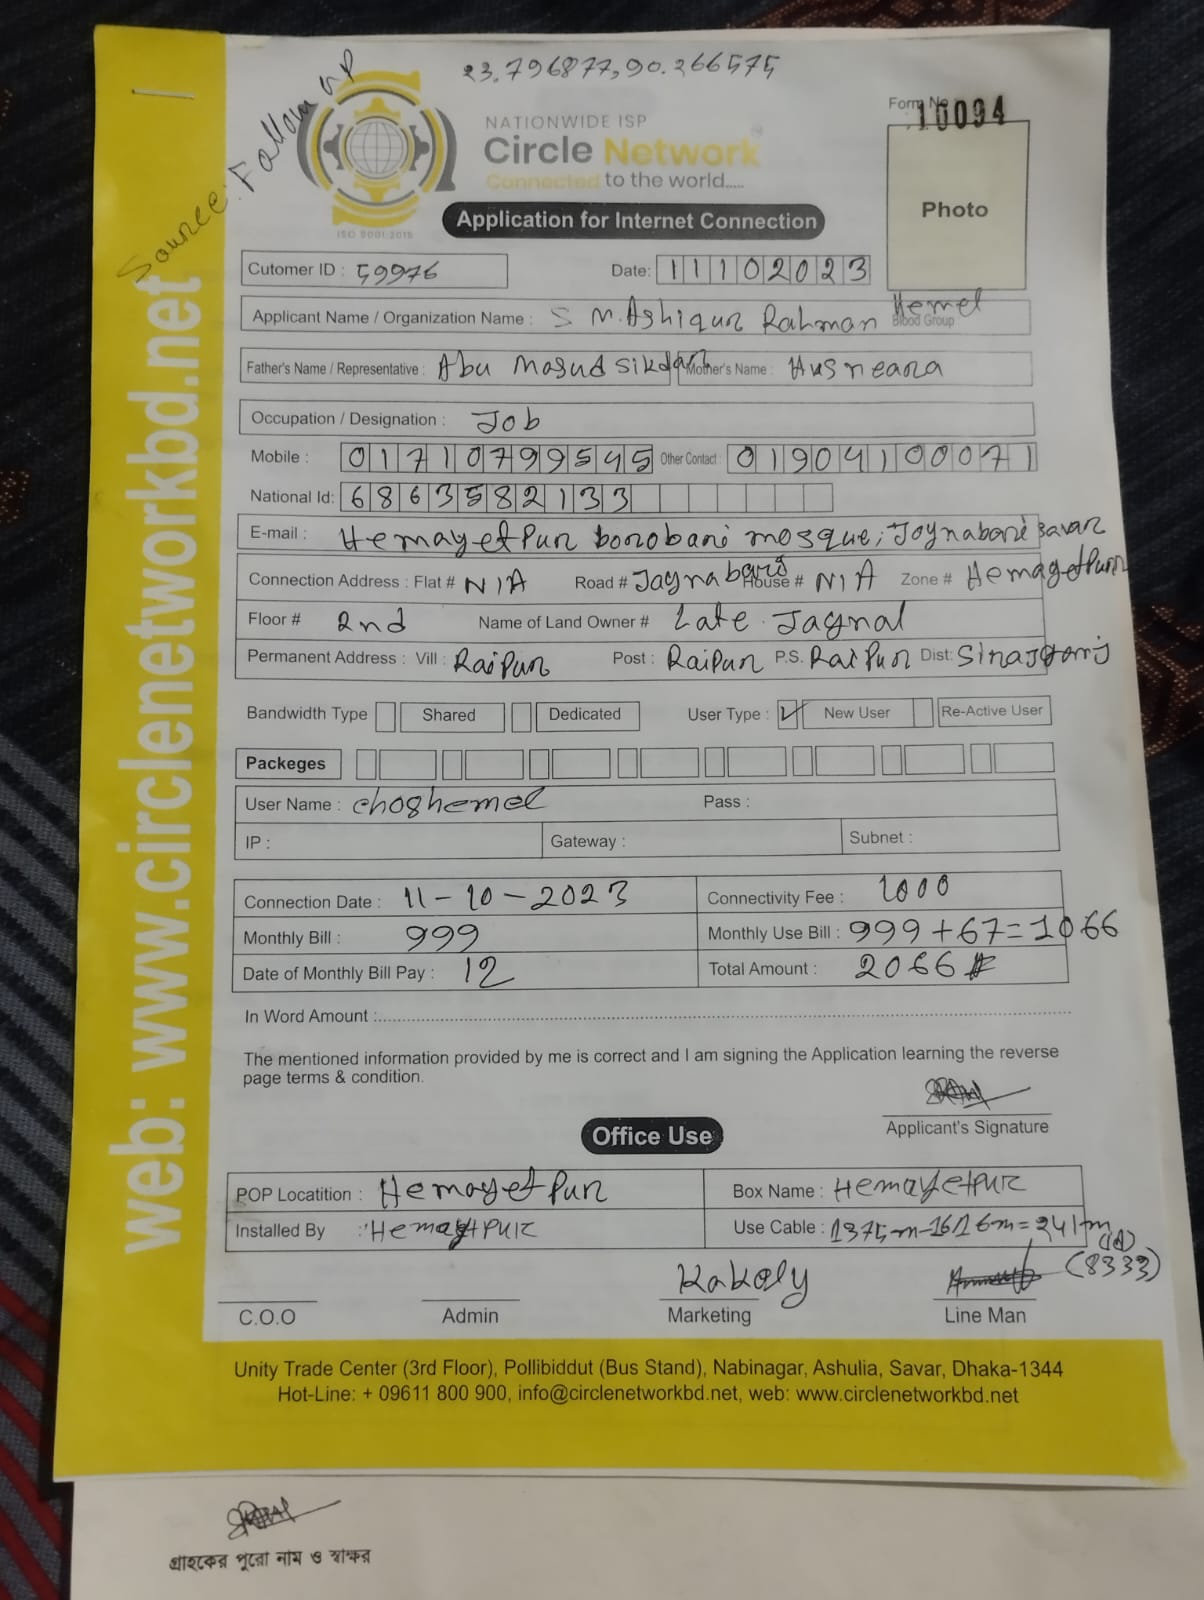 23.796877,90.266575
Source: Follow up
NATIONWIDE ISP
Circle Network
Connected to the world.....
ISO 9001:2015
Form No
10094
Photo
Application for Internet Connection
Cutomer ID : 59976 Date: 11102023
Applicant Name / Organization Name : S M. Ashiqur Rahman Hemel Blood Group
Father's Name / Representative : Abu Masud Sikdar Mother's Name : Husneara
Occupation / Designation : Job
Mobile : 01710799545 Other Contact : 01904100071
National Id: 6863582133
E-mail : Hemayetpur borobari mosque, Joynabari Savar
Connection Address : Flat # N/A Road # Jaynabari House # N/A Zone # Hemayetpur
Floor # 2nd Name of Land Owner # Late. Jaynal
Permanent Address : Vill : Raipur Post : Raipur P.S. Raipur Dist: Sirajgonj
Bandwidth Type Shared Dedicated User Type : ✓ New User Re-Active User
Packeges
User Name : choshemel Pass :
IP : Gateway : Subnet :
Connection Date : 11-10-2023 Connectivity Fee : 1000
Monthly Bill : 999 Monthly Use Bill : 999+67=1066
Date of Monthly Bill Pay : 12 Total Amount : 2066
In Word Amount :
The mentioned information provided by me is correct and I am signing the Application learning the reverse
page terms & condition.
Applicant's Signature
Office Use
POP Locatition : Hemayetpur Box Name : Hemayetpur
Installed By : Hemaytpur Use Cable : 1375m-1616m=241m
(8333)
Kakoly
C.O.O Admin Marketing Line Man
Unity Trade Center (3rd Floor), Pollibiddut (Bus Stand), Nabinagar, Ashulia, Savar, Dhaka-1344
Hot-Line: + 09611 800 900, info@circlenetworkbd.net, web: www.circlenetworkbd.net
web: www.circlenetworkbd.net
গ্রাহকের পুরো নাম ও স্বাক্ষর